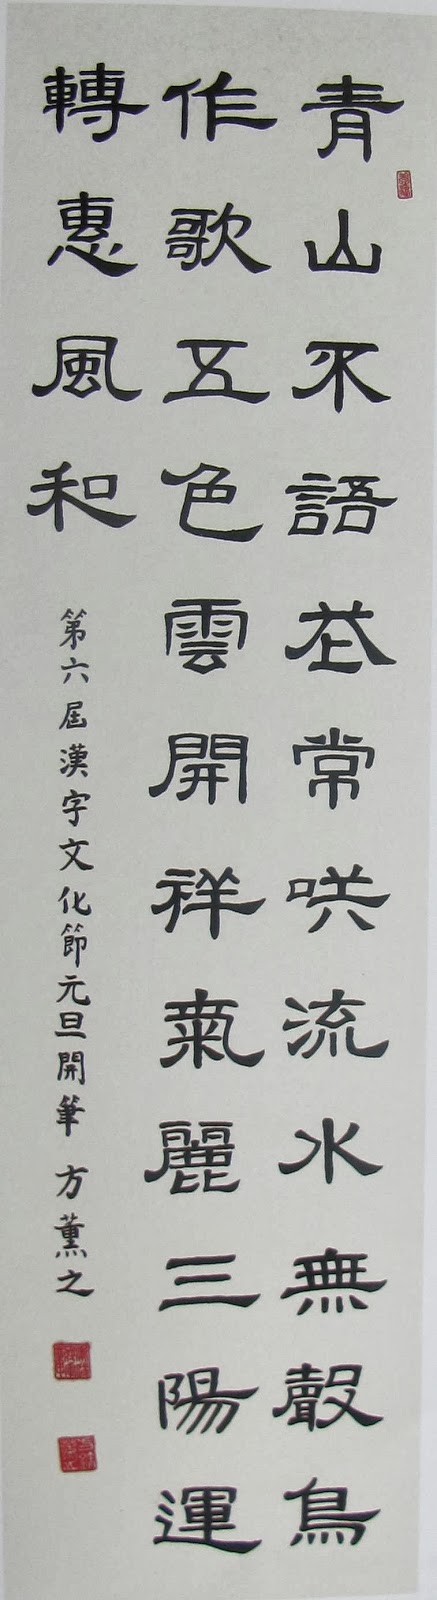 青山不語花常咲流水無聲鳥
作歌五色雲開祥氣麗三陽運
轉惠風和
第六屆漢字文化節元旦開筆 方薰之